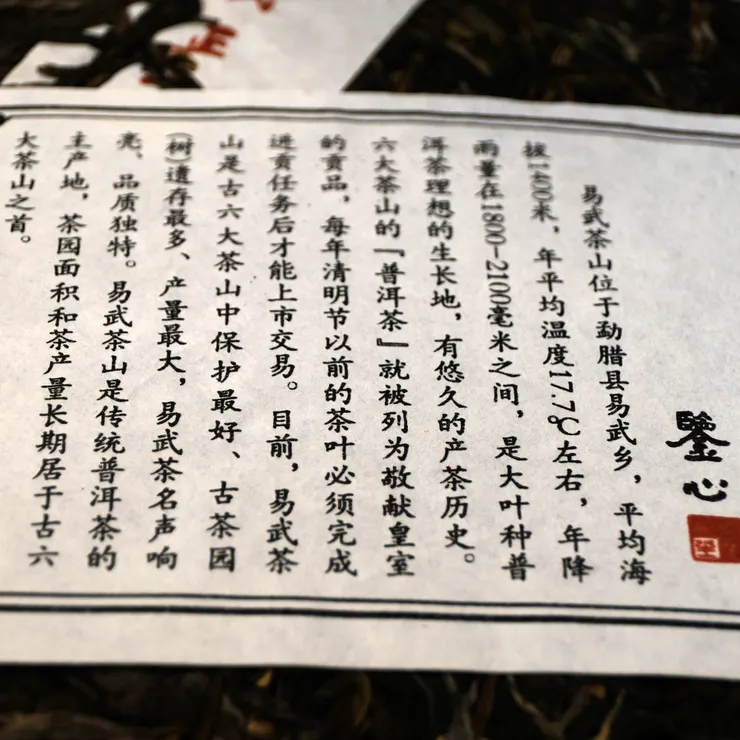 鑒心
易武茶山位于勐腊县易武乡，平均海
拔1400米，年平均温度17.7℃左右，年降
雨量在1800-2100毫米之间，是大叶种普
洱茶理想的生长地，有悠久的产茶历史。
六大茶山的『普洱茶』就被列为敬献皇室
的贡品，每年清明节以前的茶叶必须完成
进贡任务后才能上市交易。目前，易武茶
山是古六大茶山中保护最好、古茶园
(树)遗存最多、产量最大，易武茶名声响
亮、品质独特。易武茶山是传统普洱茶的
主产地，茶园面积和茶产量长期居于古六
大茶山之首。